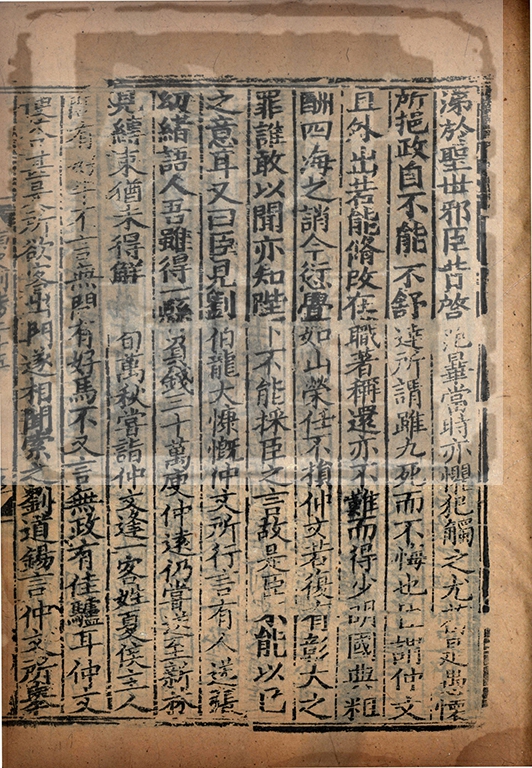 深於聖世邪臣昔啓范曄當時亦懼犯觸之尤苟是愚懷
所挹政自不能不舒達所謂雖九死而不悔也臣謂仲文
且外出若能脩改在職著稱還亦不難而得少明國典粗
酬四海之誚今愆釁如山榮任不損仲文若復有彰大之
罪誰敢以聞亦知陛下不能採臣之言故是臣不能以己
之意耳又曰臣見劉伯龍大慷慨仲文所行言有人送張
幼緒語人吾雖得一縣負錢三十萬庾仲遠仍當送至新林
見縛束猶未得解旬萬秋嘗詣仲文逢一客姓夏侯主人
問有好牛不言無問有好馬不又言無政有佳驢耳仲文
便荅甚是所欲客出門遂相聞索之劉道錫言仲文所舉